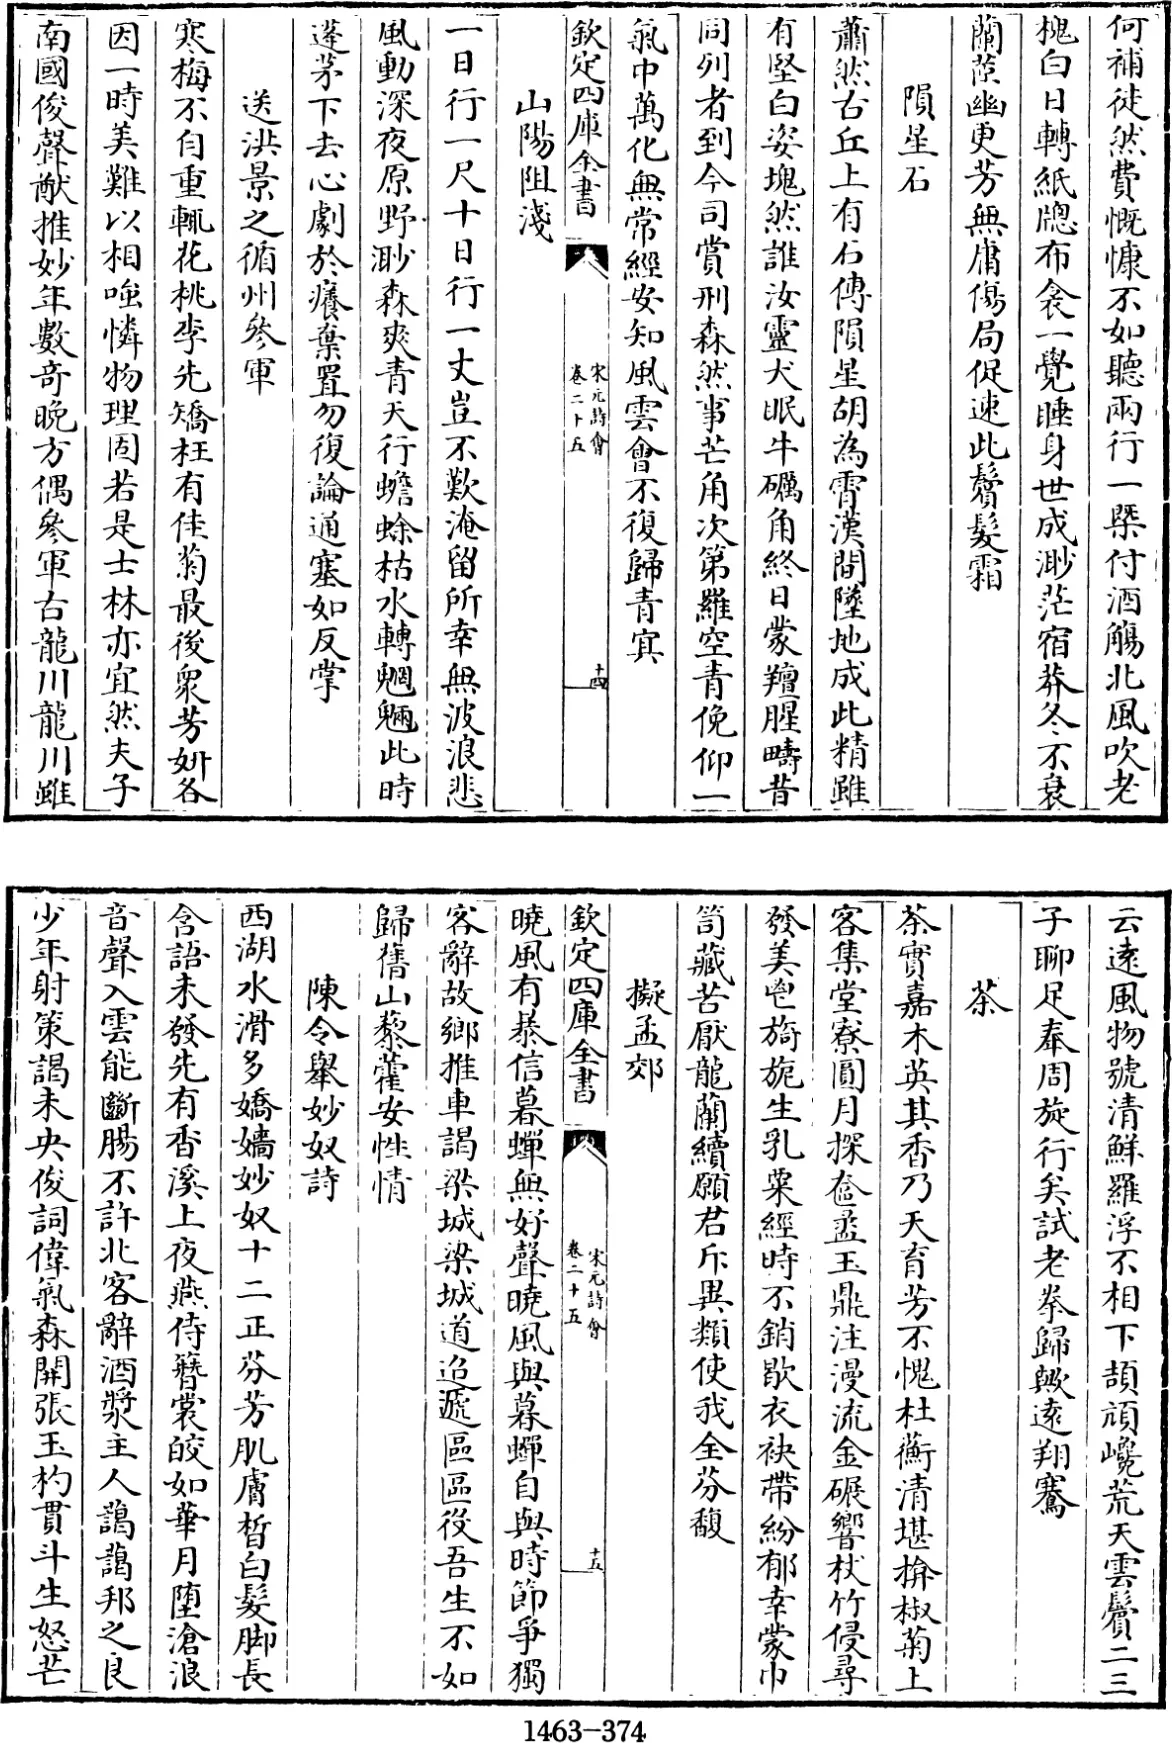 何補徒然費慨慷不如聽兩行一槩付酒觴北風吹老
槐白日轉紙牕布衾一覺睡身世成渺茫宿莽冬不衰
蘭蓀幽更芳無庸傷局促速此鬢髮霜
隕星石
蕭然古丘上有石傳隕星胡為霄漢間墜地成此精雖
有堅白姿塊然誰汝靈犬眠牛礪角終日蒙羶腥疇昔
同列者到今司賞刑森然事芒角次第羅空青俛仰一
氣中萬化無常經安知風雲會不復歸青㝠
欽定四庫全書
宋元詩會
卷二十五
十四
山陽阻淺
一日行一尺十日行一丈豈不歎淹留所幸無波浪悲
風動深夜原野渺森爽青天行蟾蜍枯水轉魍魎此時
蓬茅下去心劇於癢棄置勿復論通塞如反掌
送洪景之循州參軍
寒梅不自重輒花桃李先矯枉有佳菊最後衆芳姸各
因一時美難以相嗤憐物理固若是士林亦宜然夫子
南國俊聲猷推妙年數奇晚方偶參軍古龍川龍川雖
云遠風物號清鮮羅浮不相下頡頏巉荒天雲鬢二三
子聊足奉周旋行矣試老拳歸歟遠翔騫
茶
茶實嘉木英其香乃天育芳不愧杜蘅清堪揜椒菊上
客集堂寮圓月探奩盝玉鼎注漫流金碾響杖竹侵尋
發美鬯旖旎生乳粟經時不銷歇衣袂帶紛郁幸蒙巾
笥藏苦厭龍蘭續願君斥異類使我全芬馥
擬孟郊
欽定四庫全書
宋元詩會
卷二十五
十五
曉風有㬥信暮蟬無好聲曉風與暮蟬自與時節爭獨
客辭故鄉推車謁梁城梁城道迢遞區區役吾生不如
歸舊山藜藿安性情
陳令舉妙奴詩
西湖水滑多嬌嬙妙奴十二正芬芳肌膚晳白髮脚長
含語未發先有香溪上夜燕侍簪裳皎如華月墮滄浪
音聲入雲能斷腸不許北客辭酒漿主人藹藹邦之良
少年射策謁未央俊詞偉氣森開張玉杓貫斗生怒芒
1463-374